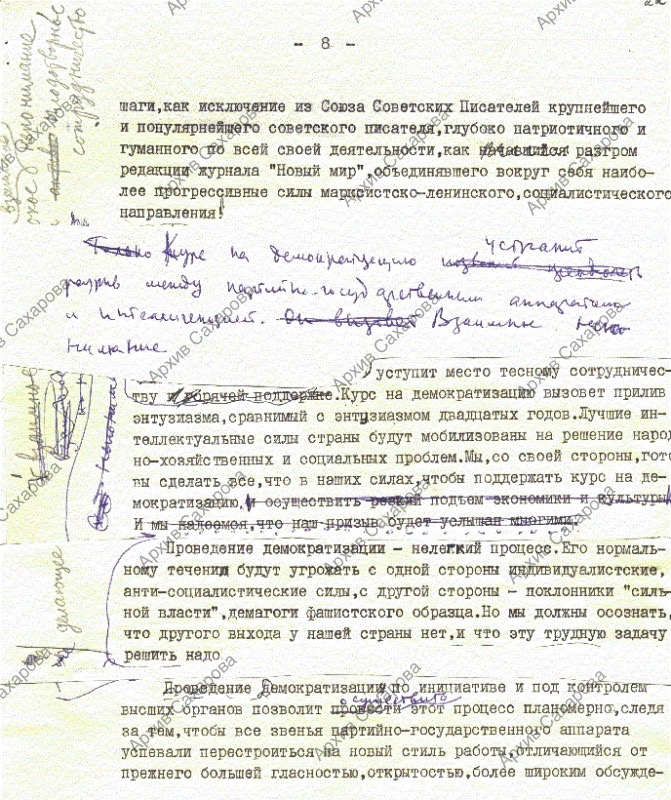 - 8 -
шаги,как исключение из Союза Советских Писателей крупнейшего
и популярнейшего советского писателя,глубоко патриотичного и
гуманного по всей своей деятельности,как начавшийся разгром
редакции журнала "Новый мир",объединявшего вокруг себя наибо-
лее прогрессивные силы марксистско-ленинского,социалистического
направления!
Только Курс на демократизацию устранит
разрыв между партийно-государственным аппаратом
и интеллигенцией. Взаимное непо
нимание
уступит место тесному сотрудничес-
тву и горячей поддержке.Курс на демократизацию вызовет прилив
энтузиазма,сравнимый с энтузиазмом двадцатых годов.Лучшие ин-
теллектуальные силы страны будут мобилизованы на решение народ
но-хозяйственных и социальных проблем.Мы,со своей стороны,гото
вы сделать все,что в наших силах,чтобы поддержать курс на де-
мократизацию,и осуществить резкий подъем экономики и культуры
И мы надеемся,что наш призыв будет услышан многими.
Проведение демократизации - нелегкий процесс.Его нормаль-
ному течении будут угрожать с одной стороны индивидуалистские,
анти-социалистические силы,с другой стороны - поклонники "силь-
ной власти",демагоги фашистского образца.Но мы должны осознать,
что другого выхода у нашей страны нет,и что эту трудную задачу
решить надо
Проведение демократизации по инициативе и под контролем
осуществить
высших органов позволит провести этот процесс планомерно,следя
за тем,чтобы все звенья партийно-государственного аппарата
успевали перестроиться на новый стиль работы,отличающийся от
прежнего большей гласностью,открытостью,более широким обсужде-
непонимание
плодотворное
сотрудничество
взаимное
Архив Сахарова